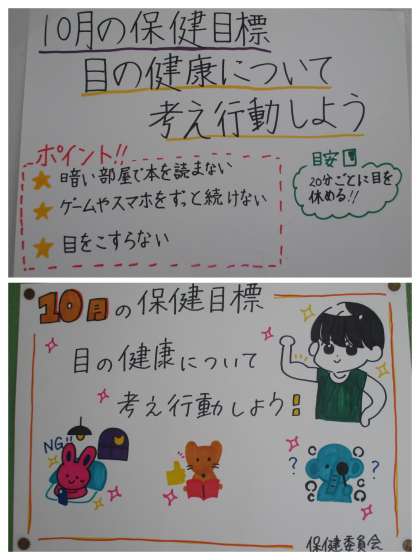 10月の保健目標
目の健康について
考え行動しよう
ポイント!!
暗い部屋で本を読まない
ゲームやスマホをずっと続けない
目をこすらない
目安
20分ごとに目を
休める!!
10月の保健目標
目の健康について
考え行動しよう!
NG!!
?
?
保健委員会